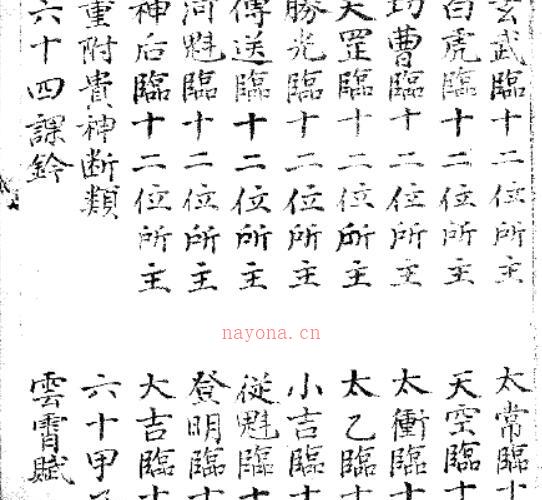 玄武臨十二位所主
太常臨十
白虎臨十二位所主
天空臨十
功曹臨十二位所主
太衝臨十
天罡臨十二位所主
太乙臨十
勝光臨十二位所主
小吉臨十
傳送臨十二位所主
從魁臨十
河魁臨十二位所主
登明臨十
神后臨十二位所主
大吉臨十
重附貴神断類
六十甲
六十四課鈐
雲霄賦
nayona.cn